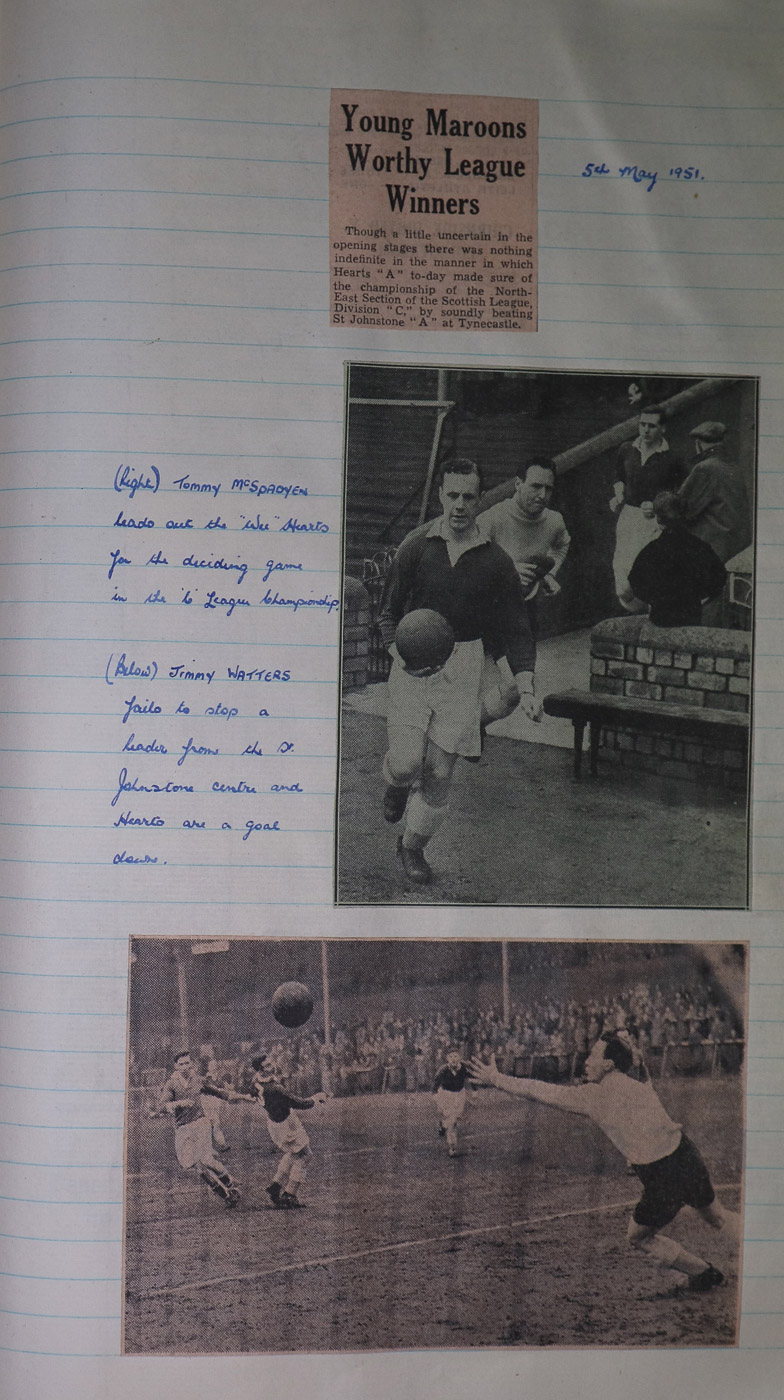 Young Maroons
Worthy League
Winners
Though a little uncertain in the
opening stages there was nothing
indefinite in the manner in which
Hearts "A" to-day made sure of
the championship of the North-
East Section of the Scottish League,
Division "C," by soundly beating
St Johnstone "A" at Tynecastle.
5th May 1951.
(Right) Tommy McSpadyen
leads out the "Wee" Hearts
for the deciding game
in the 'C' League Championship.
(Below) Jimmy Watters
fails to stop a
header from the St.
Johnstone centre and
Hearts are a goal
down.